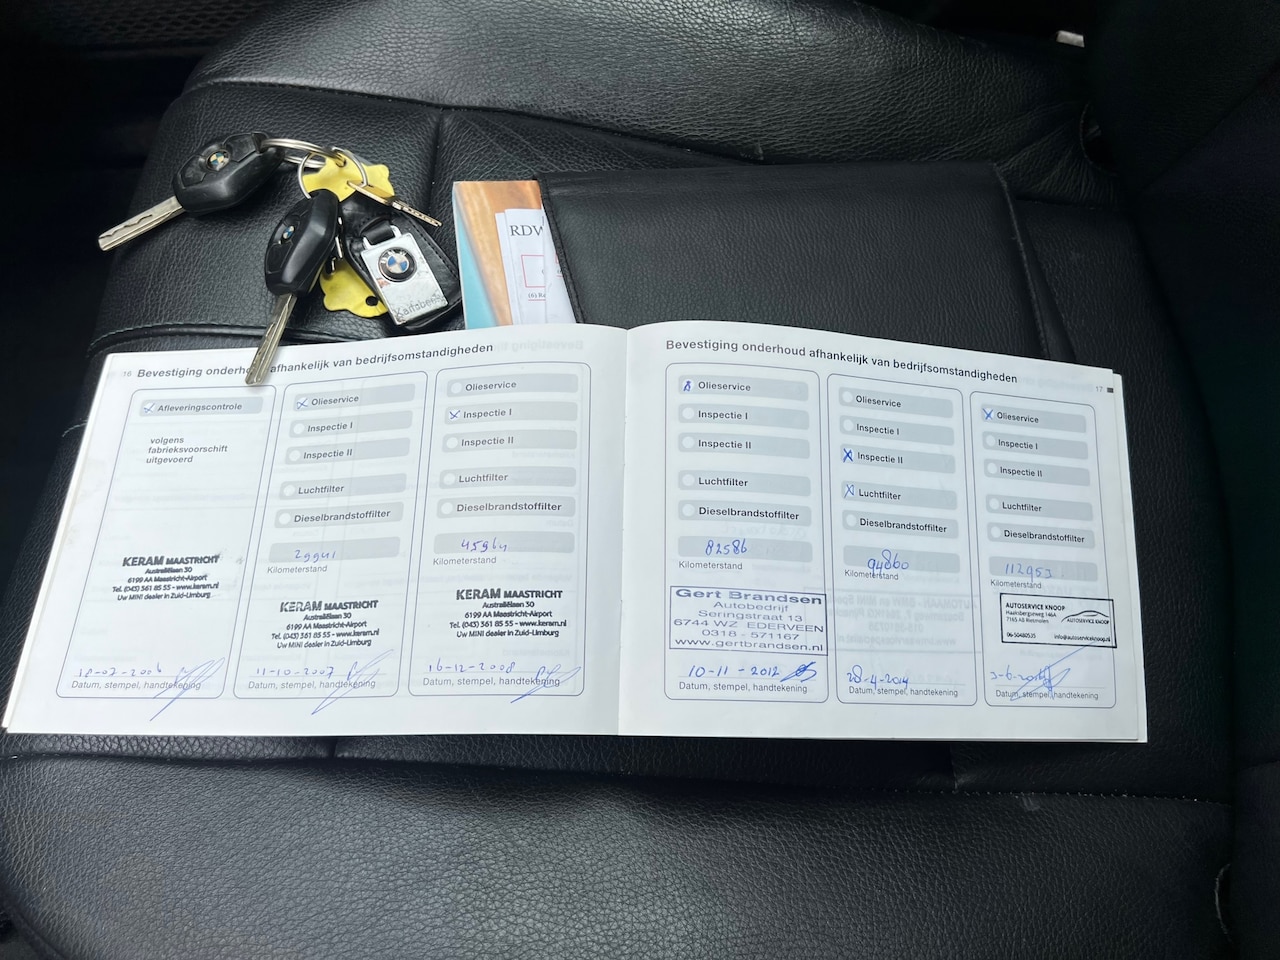 RDW
(6) Re
Kantobem
16 Bevestiging onderhoud afhankelijk van bedrijfsomstandigheden
Afleveringscontrole
volgens
fabrieksvoorschift
uitgevoerd
KERAM MAASTRICHT
Australiëlaan 30
6199 AA Maastricht-Airport
Tel. (043) 361 85 55 - www.keram.nl
Uw MINI dealer in Zuid-Limburg
18-07-2006
Datum, stempel, handtekening
Olieservice
Inspectie I
Inspectie II
Luchtfilter
Dieselbrandstoffilter
29941
Kilometerstand
KERAM MAASTRICHT
Australiëlaan 30
6199 AA Maastricht-Airport
Tel. (043) 361 85 55 - www.keram.nl
Uw MINI dealer in Zuid-Limburg
11-10-2007
Datum, stempel, handtekening
Olieservice
Inspectie I
Inspectie II
Luchtfilter
Dieselbrandstoffilter
45964
Kilometerstand
KERAM MAASTRICHT
Australiëlaan 30
6199 AA Maastricht-Airport
Tel. (043) 361 85 55 - www.keram.nl
Uw MINI dealer in Zuid-Limburg
16-12-2008
Datum, stempel, handtekening
Bevestiging onderhoud afhankelijk van bedrijfsomstandigheden
17
Olieservice
Inspectie I
Inspectie II
Luchtfilter
Dieselbrandstoffilter
82586
Kilometerstand
Gert Brandsen
Autobedrijf
Seringstraat 13
6744 WZ EDERVEEN
0318 - 571167
www.gertbrandsen.nl
10-11-2012
Datum, stempel, handtekening
Olieservice
Inspectie I
Inspectie II
Luchtfilter
Dieselbrandstoffilter
94860
Kilometerstand
28-4-2014
Datum, stempel, handtekening
Olieservice
Inspectie I
Inspectie II
Luchtfilter
Dieselbrandstoffilter
112953
Kilometerstand
AUTOSERVICE KNOOP
Haaksbergseweg 146A
7165 AB Rietmolen
AUTOSERVICE KNOOP
06-50480535 info@autoserviceknoop.nl
Datum, stempel, handtekening